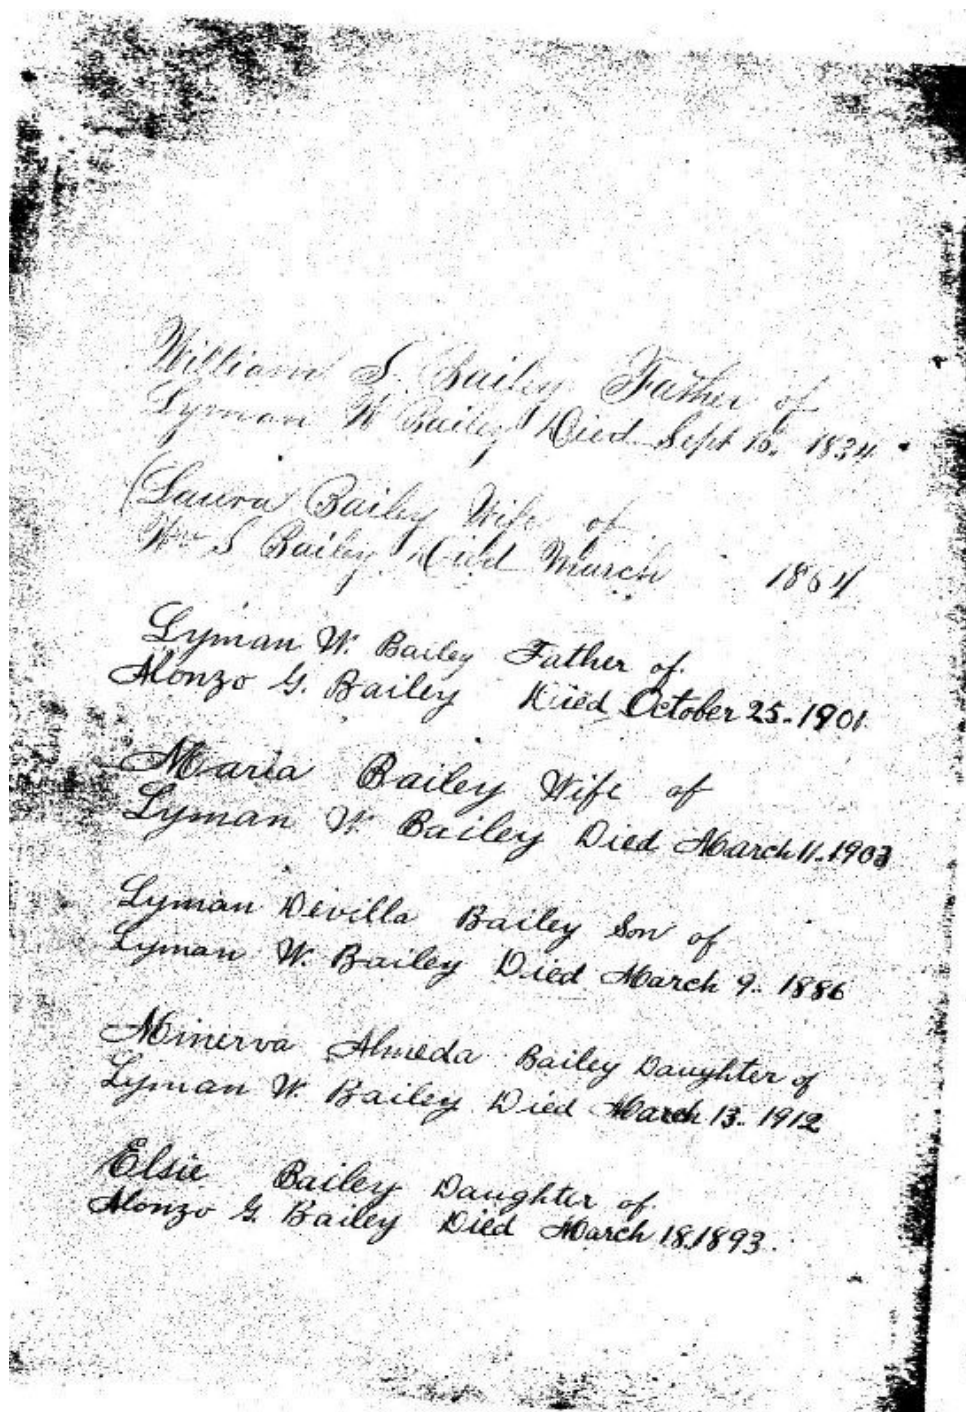 William S. Bailey Father of
Lyman W Bailey Died Sept 15. 1834
(Laura Bailey Wife of
Wm S Bailey Died March 1864
Lyman W. Bailey Father of.
Alonzo G. Bailey Died October 25. 1901
Maria Bailey Wife of
Lyman W. Bailey Died March 11. 1903
Lyman Devilla Bailey Son of
Lyman W. Bailey Died March 9. 1886
Minerva Almeda Bailey Daughter of
Lyman W. Bailey Died March 13. 1912
Elsie Bailey Daughter of.
Alonzo G. Bailey Died March 18. 1893.